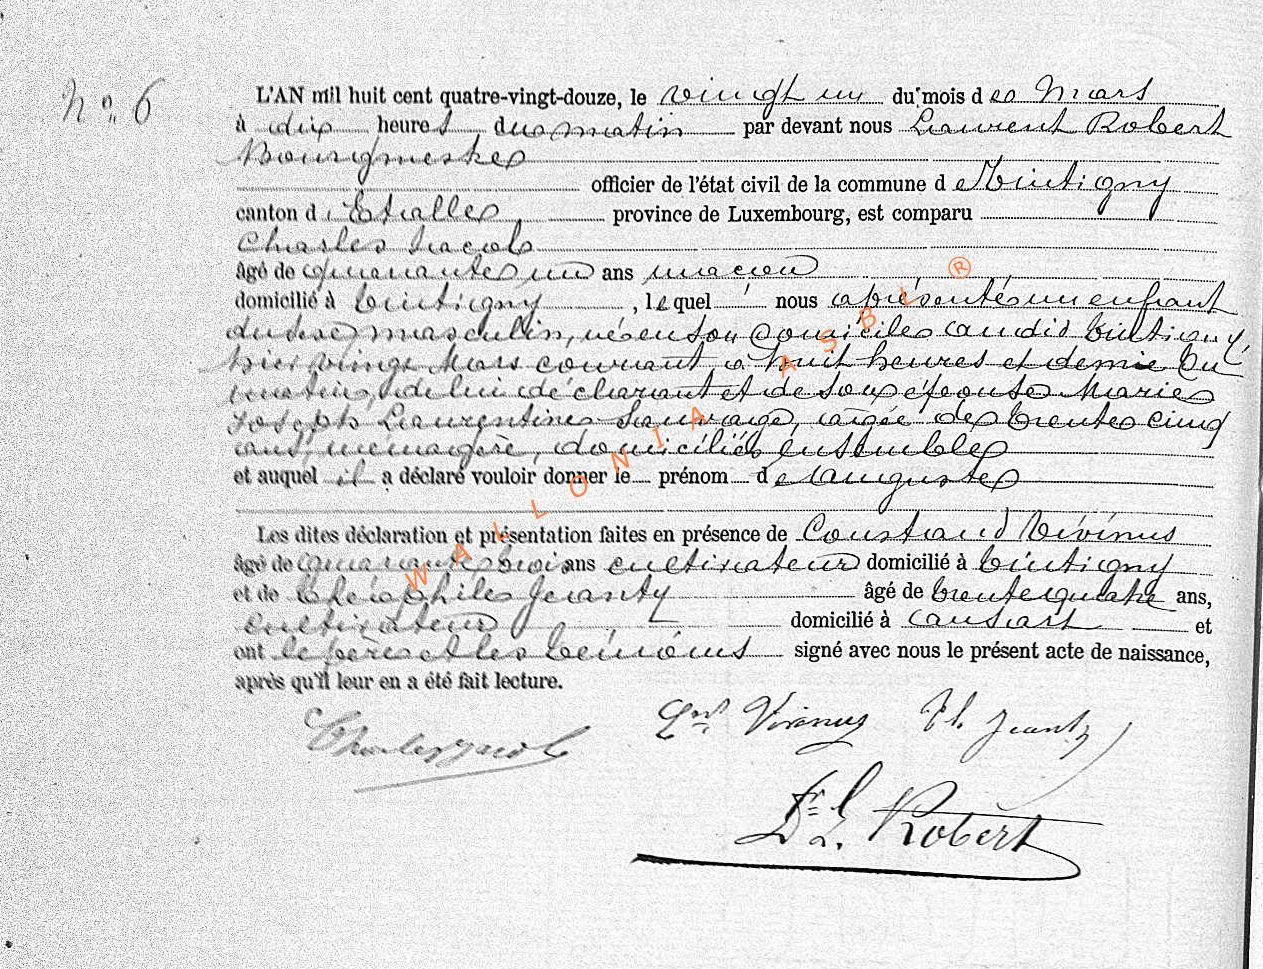 N° 6
L'AN mil huit cent quatre-vingt-douze, le vingt un du mois de Mars
à dix heures du matin par devant nous Laurent Robert
Bourgmestre
officier de l'état civil de la commune de Tintigny
canton d'Etalle, province de Luxembourg, est comparu
Charles Jacob
âgé de quarante un ans maçon
domicilié à Tintigny, lequel nous a présenté un enfant
du sexe masculin, né en son domicile audit Tintigny,
hier vingt Mars courant à huit heures et demie du
matin, de lui déclarant et de son épouse Marie
Joseph Laurentine Sauvage, âgée de trente cinq
ans, ménagère, domiciliés ensemble
et auquel il a déclaré vouloir donner le prénom d'Auguste
Les dites déclaration et présentation faites en présence de Constant Vivinus
âgé de quarante trois ans cultivateur domicilié à Tintigny
et de Théophile Jeanty âgé de trente quatre ans,
cultivateur domicilié à Ansart et
ont le père et les témoins signé avec nous le présent acte de naissance,
après qu'il leur en a été fait lecture.
Charles Jacob Cnt Vivinus Th. Jeanty
Dr L. Robert
WALLONIA ASBL ®